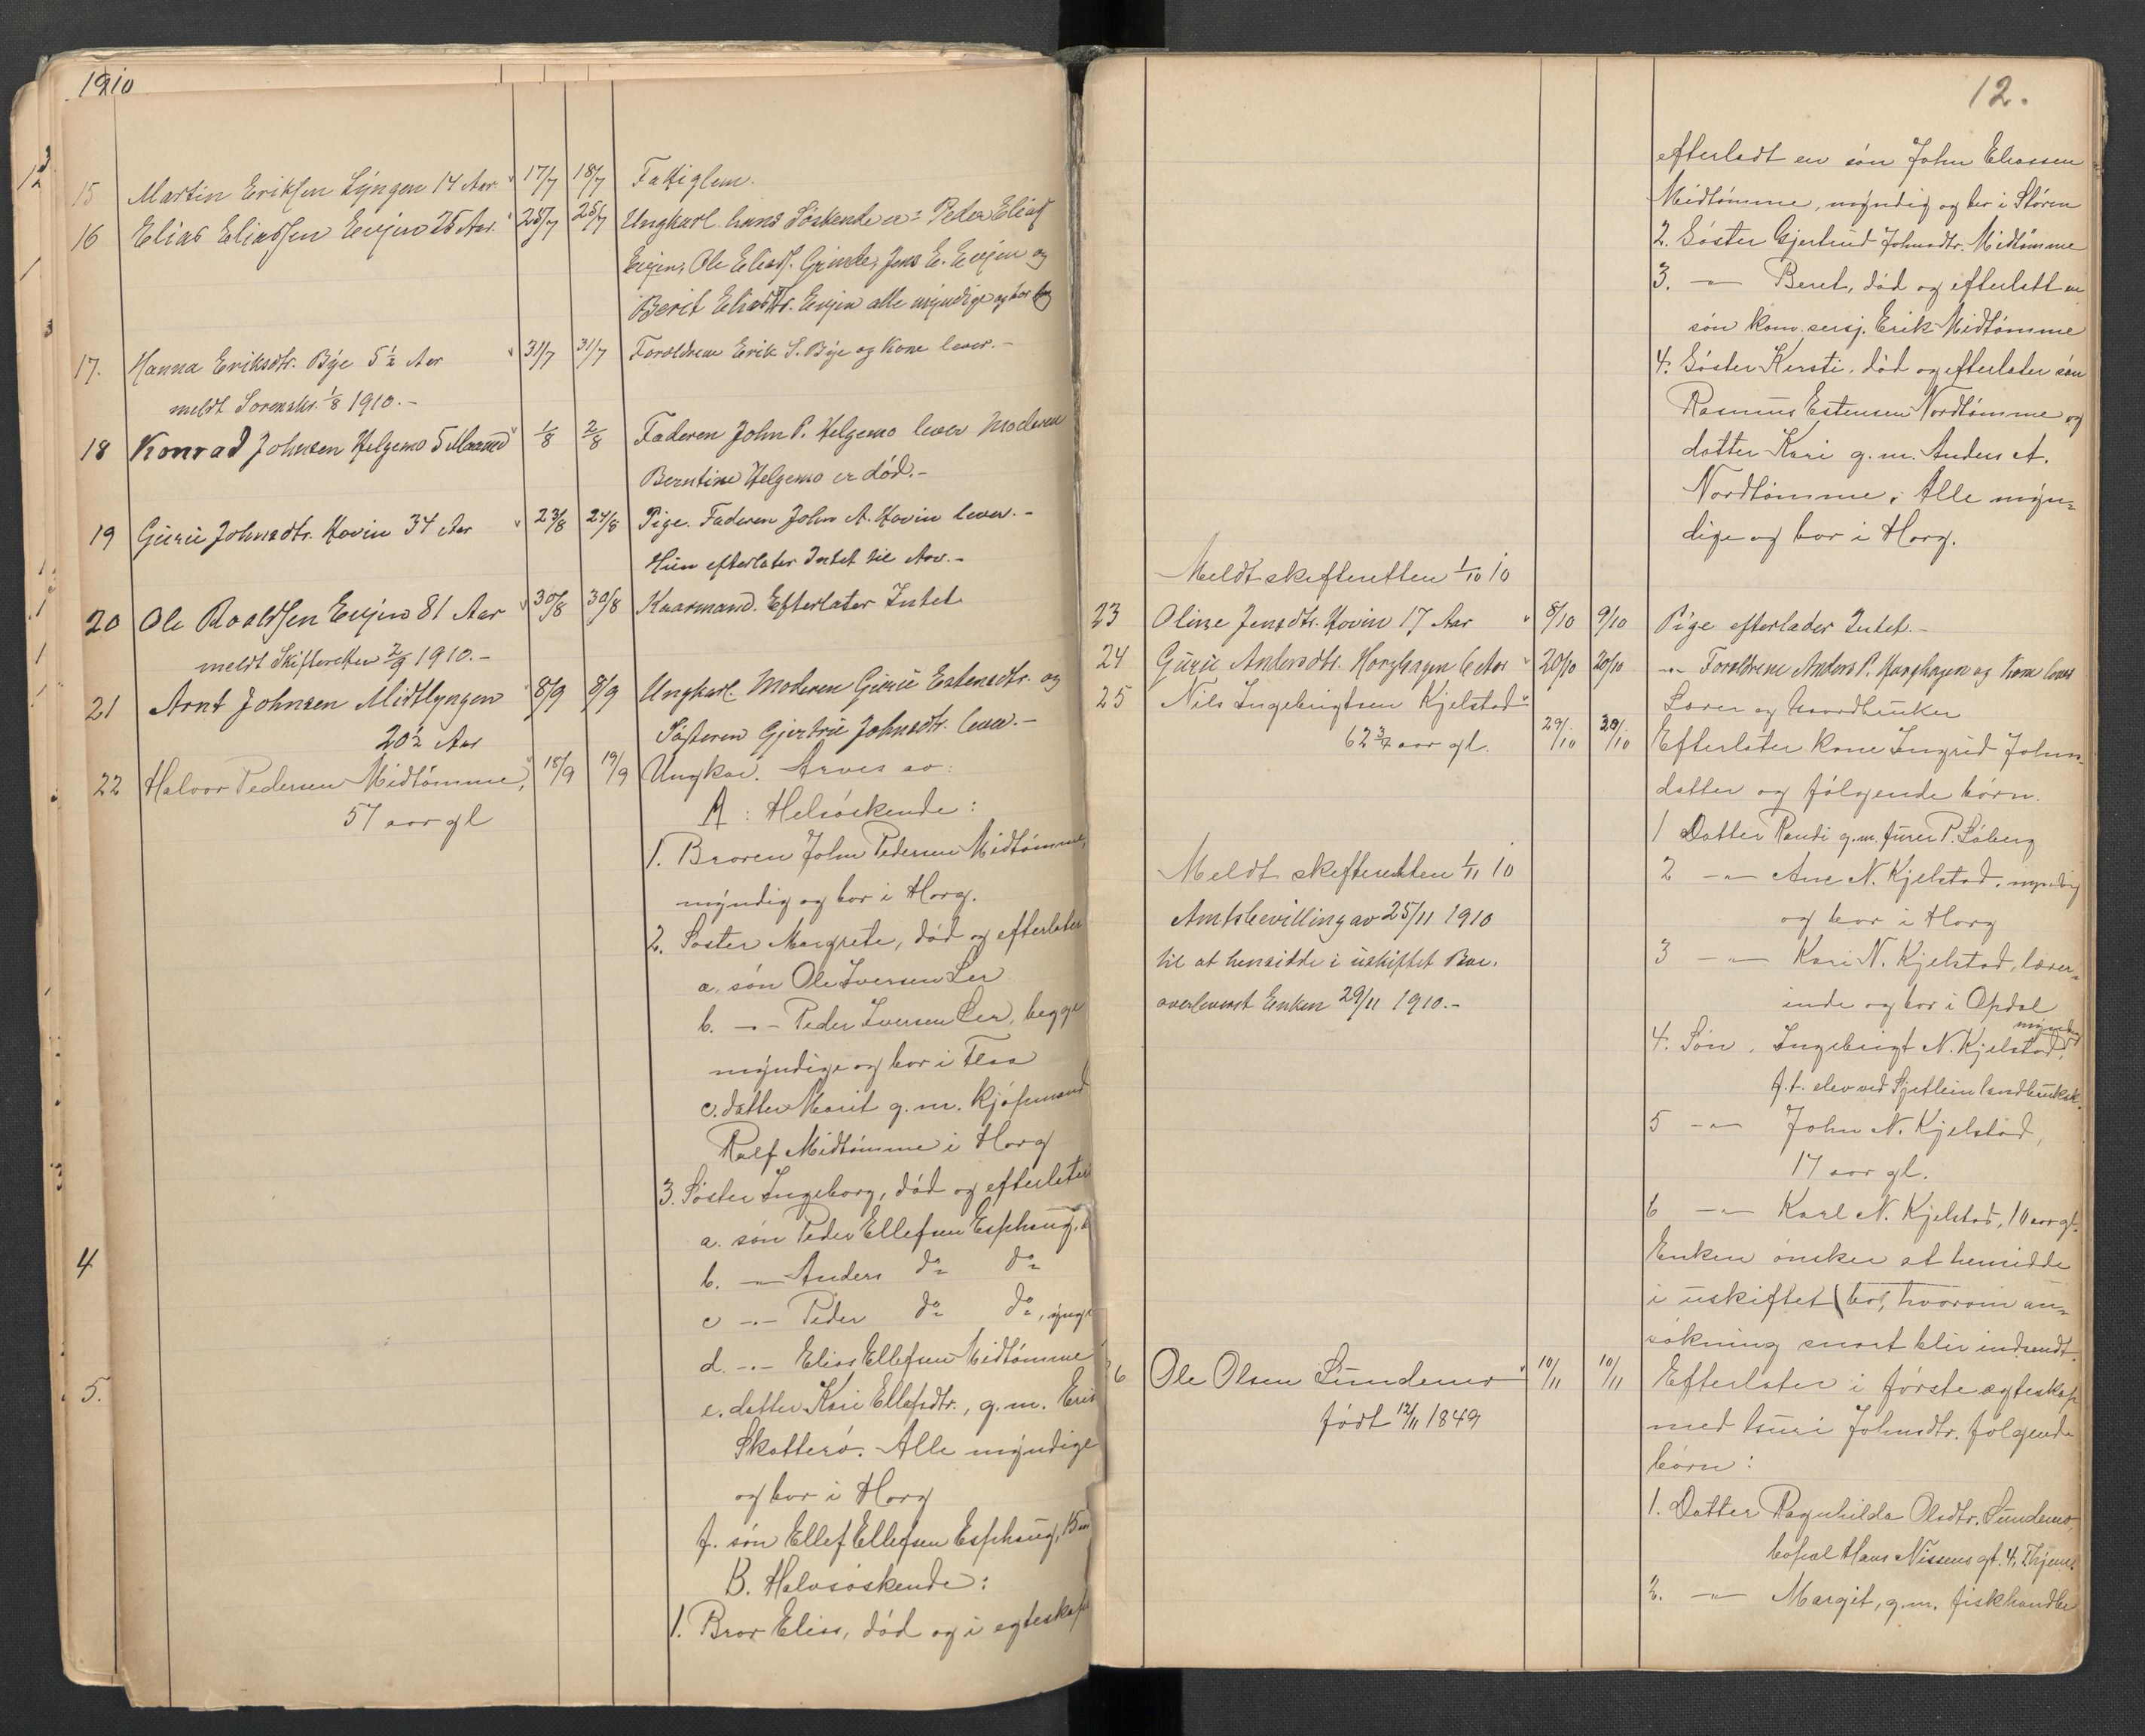 1910
15 Martin Eriksen Lyngen 14 Aar 17/7 18/7 Fattiglem.
16 Elias Eliassen Evjen 25 Aar 25/7 25/7 Ungkarl. hans Søskende er: Peter Elias
Evjen, Ole Eliass. Grinde, Jens E. Evjen og
Berit Eliasdtr. Evjen alle myndige og bor
17. Hanna Eriksdtr. Bye 5½ Aar 31/7 31/7 Forældrene Erik S. Bye og Kone lever.-
meldt Sorenskr. 1/8 1910.-
18 Konrad Johnsen Helgemo 5 Maaned 1/8 2/8 Faderen John P. Helgemo lever Moderen
Berntine Helgemo er død.-
19 Gurie Johnsdtr. Hovin 34 Aar 23/8 24/8 Pige. Faderen John A. Hovin lever.-
Hun efterlater Intet til Arv.-
20 Ole Roaldsen Evjen 81 Aar 30/8 30/8 Kaarmand. Efterlater Intet
meldt Skifteretten 2/9 1910.-
21 Arnt Johnsen Midtlyngen 8/9 8/9 Ungkarl. Moderen Gurie Estensdtr. og
20½ Aar Søsteren Gjertrù Johnsdtr. lever.-
22 Halvor Pedersen Midtømme, 18/9 19/9 Ungkar. Arves av:
57 aar gl A: Helsøskende:
1. Broren John Pedersen Midtømme,
myndig og bor i Horg.
2. Søster Margrete, død og efterlater
a. søn Ole Iversen Ler
b. -"- Peder Iversen Ler, begge
myndige og bor i Flaa
c. datter Marit g.m. kjøpmand
Rolf Midtømme i Horg
3. Søster Ingeborg, død og efterlater
a. søn Peder Ellefsen Esphaug,
b. -"- Anders do do
c -"- Peder do do, yngr
d. -"- Elias Ellefsen Midtømme
e. datter Kari Ellefsdtr., g.m. Erik
Skotterø. Alle myndige
og bor i Horg
f. søn Ellef Ellefsen Esphaug,
B. Halvsøskende:
1. Bror Elias, død og i egteskap
12.
efterladt en søn John Eliassen
Midtømme, myndig og bor i Støren
2. Søster Gjertrud Johnsdtr. Midtømme
3. -"- Beret, død og efterlatt en
søn kom.sersj. Erik Midtømme
4. Søster Kersti, død og efterlater søn
Rasmus Estensen Nordtømme og
datter Kari g.m. Anders A.
Nordtømme. Alle myn-
dige og bor i Horg.
Meldt skifteretten 1/10 10
23 Oline Jensdtr. Hovin 17 Aar 8/10 9/10 Pige efterlader Intet.-
24 Gurie Andersdtr. Horghagen 6 Aar 20/10 20/10 -"- Forældrene Anders P. Horghagen og Kone lever
25 Nils Ingebrigtsen Kjelstad Lærer og Gaardbruker
62¾ aar gl. 29/10 30/10 Efterlater kone Ingrid Johns-
datter og følgende børn.
1 Datter Randi g.m. furer P. Søberg
Meldt skifteretten 1/11 10
2 -"- Ane N. Kjelstad, myndig
Amtsbevilling av 25/11 1910 og bor i Horg
til at hensidde i uskiftet Bo 3 -"- Kari N. Kjelstad, lærer-
overleveret Enken 29/11 1910.- inde og bor i Opdal
4. Søn, Ingebrigt N. Kjelstad, myndig
f.t. elev ved Skjetlein landbruksk.
5 -"- John N. Kjelstad,
17 aar gl.
6 -"- Karl N. Kjelstad, 10 aar gl.
Enken ønsker at hensidde
i uskiftet bo, hvorom an-
søkning snart blir indsendt.
6 Ole Olsen Sundemo 10/11 10/11 Efterlater i første egteskap
født 12/11 1849 med Guri Johnsdtr. følgende
børn:
1. Datter Ragnhilda Olsdtr. Sundemo,
bopæl Hans Nissens gt. 4, Thjem.
2. -"- Margit, g.m. fiskhandler